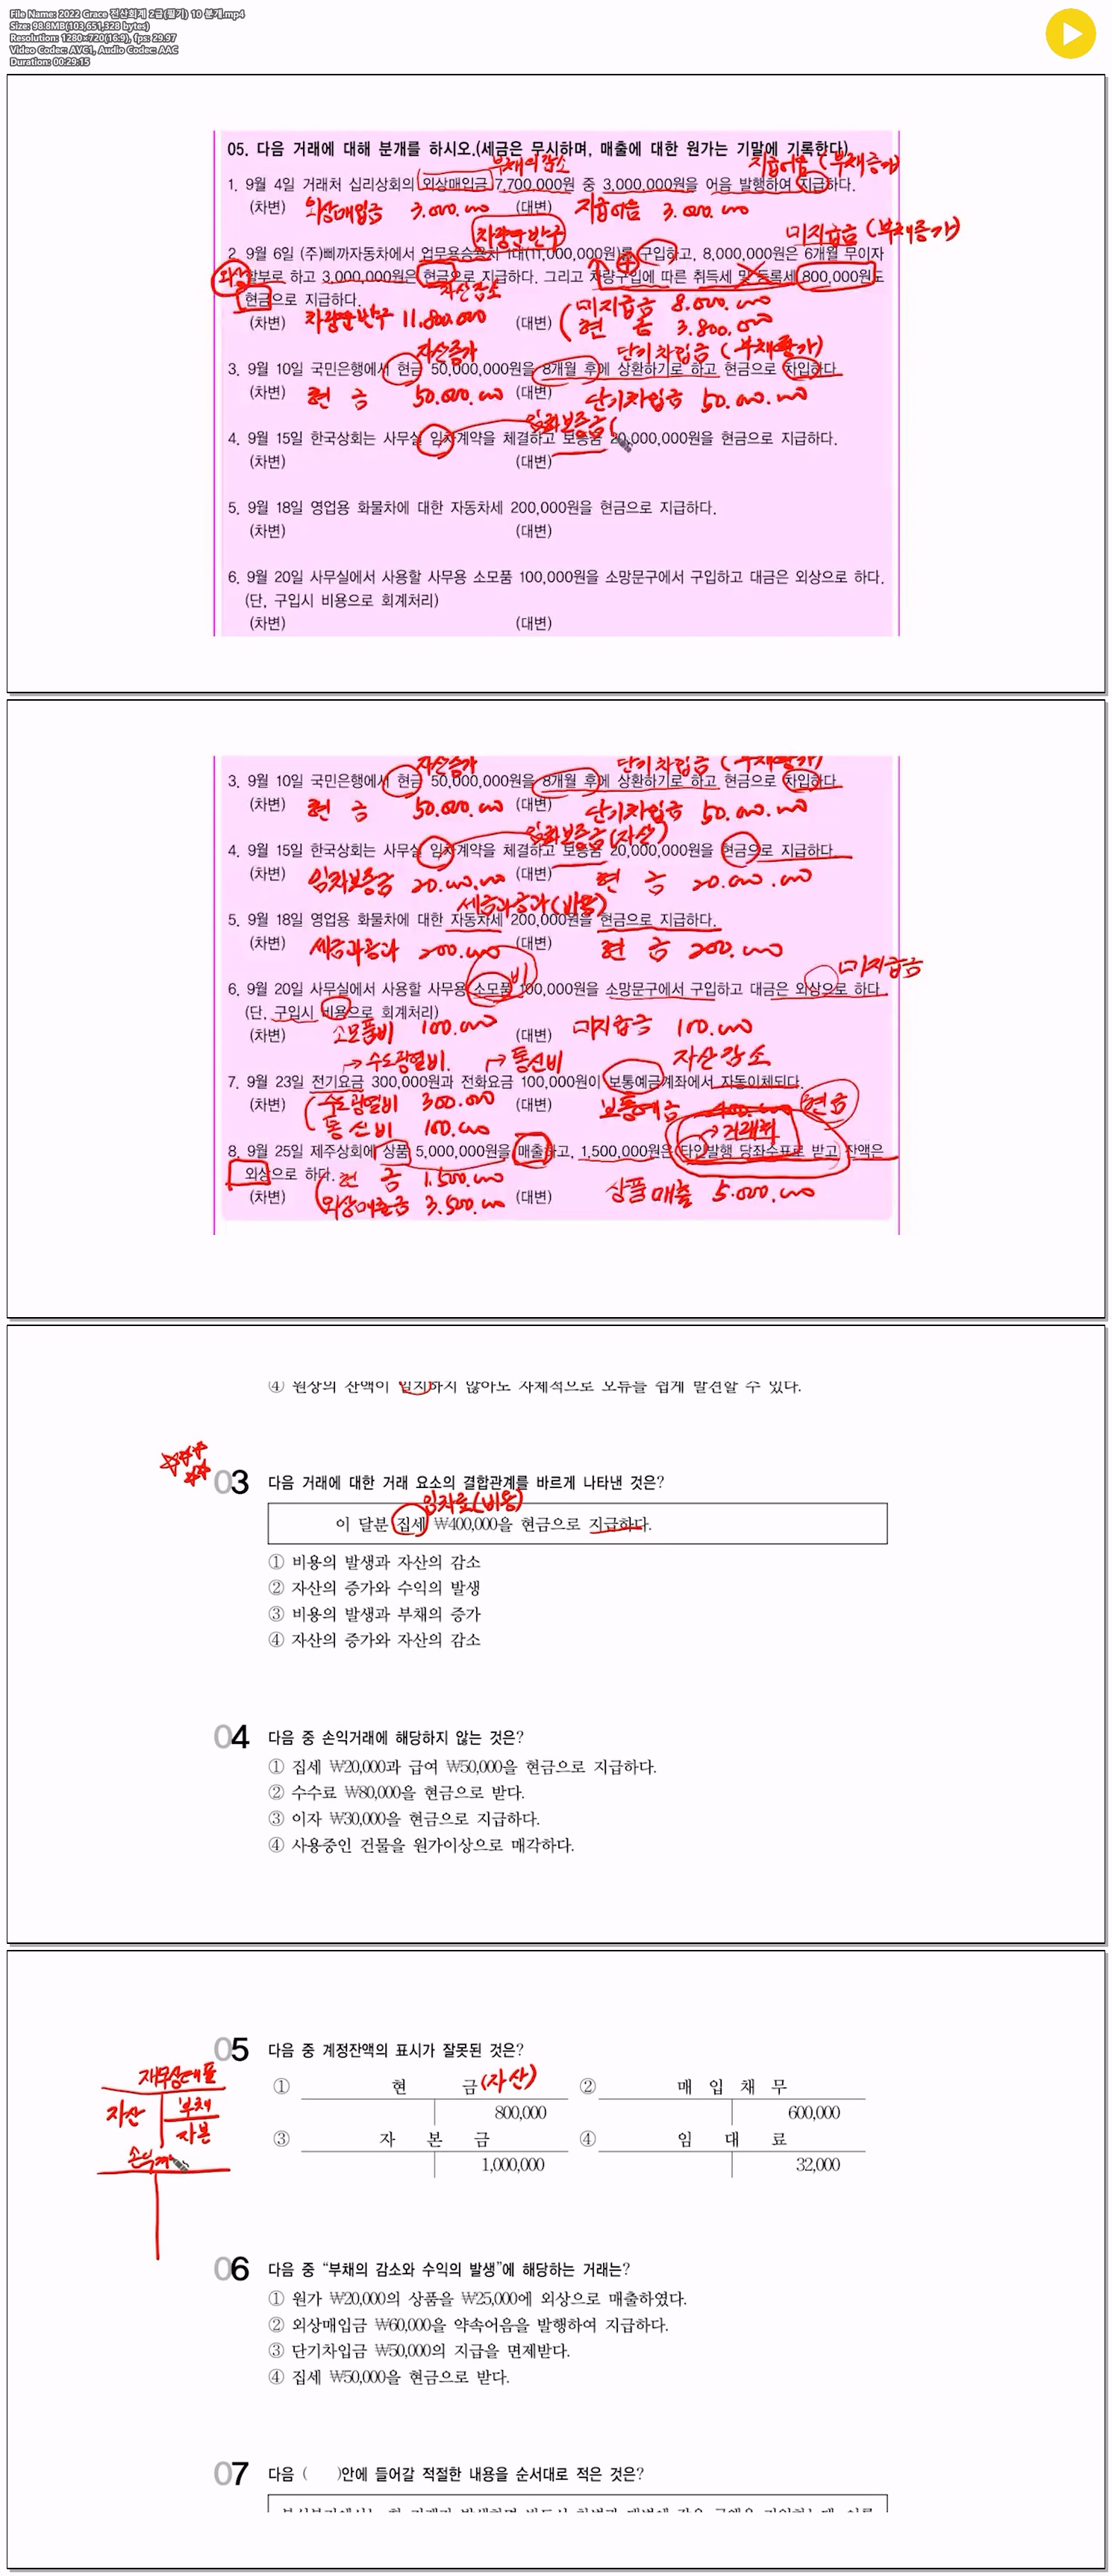 File Name: 2022 Grace 전산회계 2급(필기) 10 분개.mp4
Size: 98.8MB(103,651,328 bytes)
Resolution: 1280×720(16:9), fps: 29.97
Video Codec: AVC1, Audio Codec: AAC
Duration: 00:29:15
05. 다음 거래에 대해 분개를 하시오.(세금은 무시하며, 매출에 대한 원가는 기말에 기록한다)
부채의감소 지급어음 (부채증가)
1. 9월 4일 거래처 십리상회의 외상매입금 7,700,000원 중 3,000,000원을 어음 발행하여 지급하다.
(차변) 외상매입금 3.000.000 (대변) 지급어음 3.000.000
차량운반구 미지급금 (부채증가)
2. 9월 6일 (주)삐까자동차에서 업무용승용차 1대(11,000,000원)를 구입하고, 8,000,000원은 6개월 무이자
할부로 하고 3,000,000원은 현금으로 지급하다. 그리고 차량구입에 따른 취득세 및 등록세 800,000원도
자산감소
현금으로 지급하다.
(차변) 차량운반구 11.800.000 (대변) 미지급금 8.000.000
현 금 3.800.000
자산증가 단기차입금 (부채증가)
3. 9월 10일 국민은행에서 현금 50,000,000원을 8개월 후에 상환하기로 하고 현금으로 차입하다.
(차변) 현 금 50.000.000 (대변) 단기차입금 50.000.000
임차보증금(
4. 9월 15일 한국상회는 사무실 임차계약을 체결하고 보증금 20,000,000원을 현금으로 지급하다.
(차변) (대변)
5. 9월 18일 영업용 화물차에 대한 자동차세 200,000원을 현금으로 지급하다.
(차변) (대변)
6. 9월 20일 사무실에서 사용할 사무용 소모품 100,000원을 소망문구에서 구입하고 대금은 외상으로 하다.
(단, 구입시 비용으로 회계처리)
(차변) (대변)
자산증가 단기차입금 (부채증가)
3. 9월 10일 국민은행에서 현금 50,000,000원을 8개월 후에 상환하기로 하고 현금으로 차입하다.
(차변) 현 금 50.000.000 (대변) 단기차입금 50.000.000
임차보증금(자산)
4. 9월 15일 한국상회는 사무실 임차계약을 체결하고 보증금 20,000,000원을 현금으로 지급하다.
(차변) 임차보증금 20.000.000 (대변) 현 금 20.000.000
세금과공과(비용)
5. 9월 18일 영업용 화물차에 대한 자동차세 200,000원을 현금으로 지급하다.
(차변) 세금과공과 200.000 (대변) 현 금 200.000
비 미지급금
6. 9월 20일 사무실에서 사용할 사무용 소모품 100,000원을 소망문구에서 구입하고 대금은 외상으로 하다.
(단, 구입시 비용으로 회계처리)
(차변) 소모품비 100.000 (대변) 미지급금 100.000
→수도광열비. →통신비 자산감소
7. 9월 23일 전기요금 300,000원과 전화요금 100,000원이 보통예금계좌에서 자동이체되다.
(차변) 수도광열비 300.000 (대변) 보통예금 400.000 현금
통신비 100.000
거래처
8. 9월 25일 제주상회에 상품 5,000,000원을 매출하고, 1,500,000원은 타인발행 당좌수표로 받고 잔액은
외상으로 하다. 현 금 1.500.000
(차변) 외상매출금 3.500.000 (대변) 상품매출 5.000.000
④ 원장의 잔액이 일치하지 않아도 자체적으로 오류를 쉽게 발견할 수 있다.
03 다음 거래에 대한 거래 요소의 결합관계를 바르게 나타낸 것은?
임차료(비용)
이 달분 집세 ₩400,000을 현금으로 지급하다.
① 비용의 발생과 자산의 감소
② 자산의 증가와 수익의 발생
③ 비용의 발생과 부채의 증가
④ 자산의 증가와 자산의 감소
04 다음 중 손익거래에 해당하지 않는 것은?
① 집세 ₩20,000과 급여 ₩50,000을 현금으로 지급하다.
② 수수료 ₩80,000을 현금으로 받다.
③ 이자 ₩30,000을 현금으로 지급하다.
④ 사용중인 건물을 원가이상으로 매각하다.
05 다음 중 계정잔액의 표시가 잘못된 것은?
재무상태표
자산 부채
자본
손익계
① 현 금(자산) ② 매 입 채 무
800,000 600,000
③ 자 본 금 ④ 임 대 료
1,000,000 32,000
06 다음 중 “부채의 감소와 수익의 발생”에 해당하는 거래는?
① 원가 ₩20,000의 상품을 ₩25,000에 외상으로 매출하였다.
② 외상매입금 ₩60,000을 약속어음을 발행하여 지급하다.
③ 단기차입금 ₩50,000의 지급을 면제받다.
④ 집세 ₩50,000을 현금으로 받다.
07 다음 ( )안에 들어갈 적절한 내용을 순서대로 적은 것은?